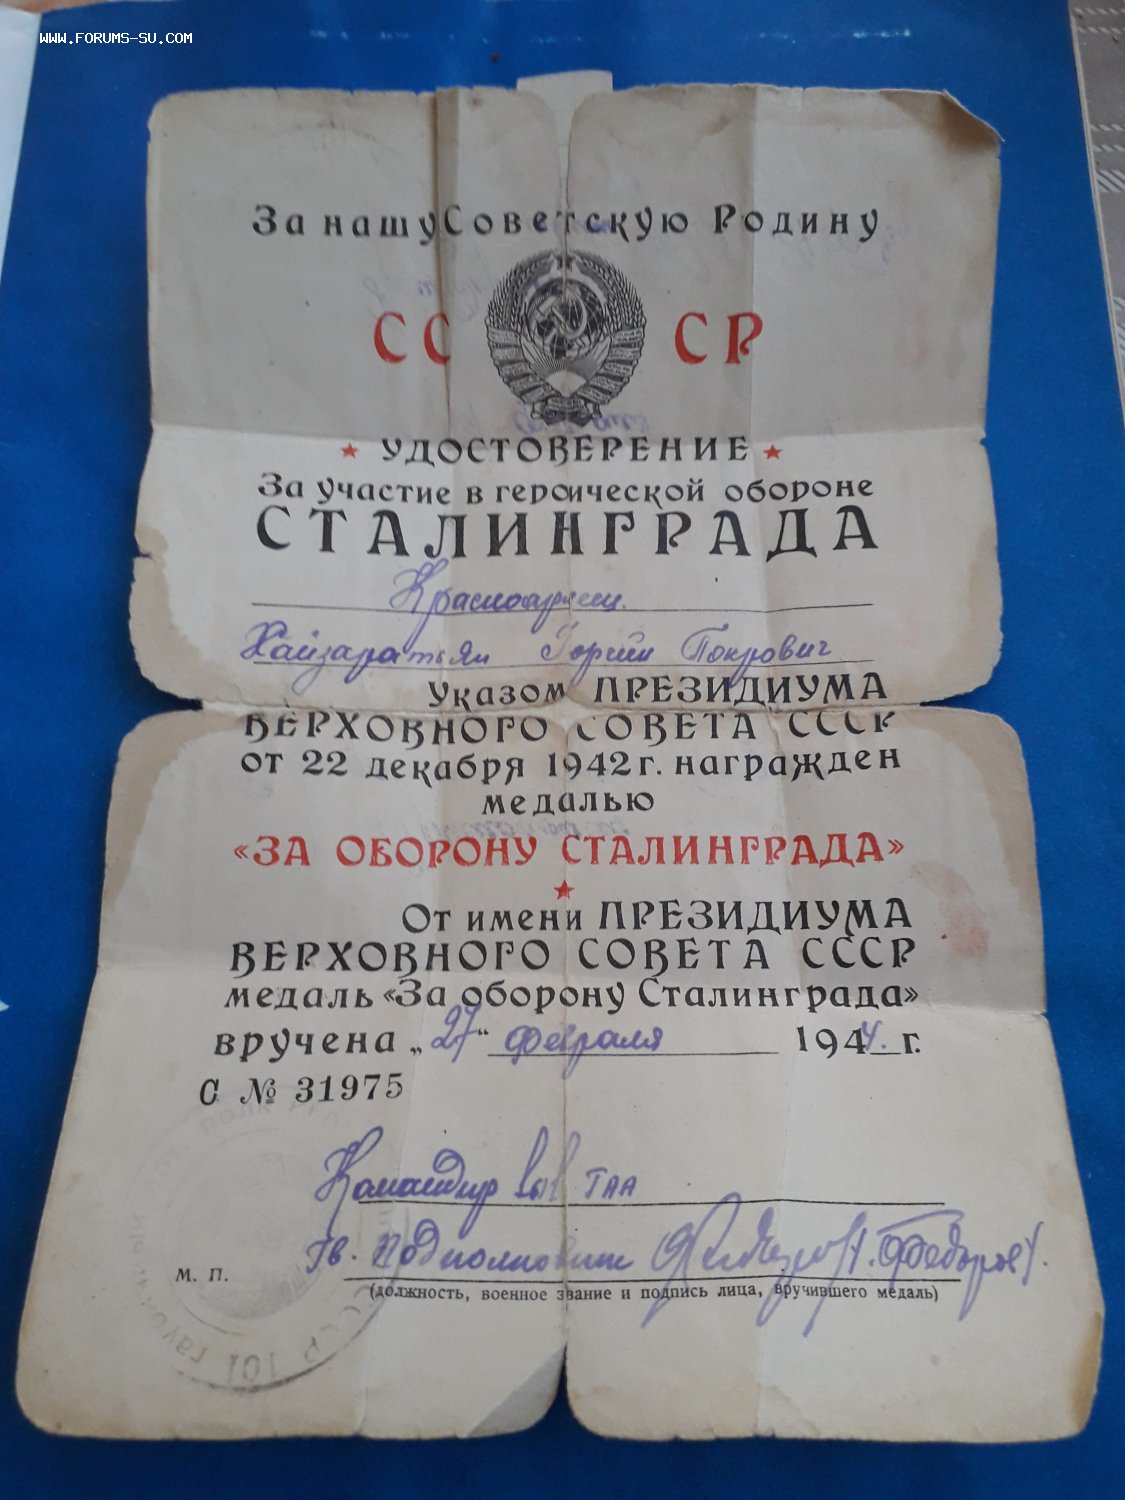 WWW.FORUMS-SU.COM
За нашу Советскую Родину
СССР
УДОСТОВЕРЕНИЕ
За участие в героической обороне
СТАЛИНГРАДА
Красноармеец
Хайзаратьян Покрович
Указом ПРЕЗИДИУМА
ВЕРХОВНОГО СОВЕТА СССР
от 22 декабря 1942 г. награжден
медалью
«ЗА ОБОРОНУ СТАЛИНГРАДА»
От имени ПРЕЗИДИУМА
ВЕРХОВНОГО СОВЕТА СССР
медаль «За оборону Сталинграда»
вручена „27“ февраля 1944. г.
С № 31975
Командир
Гв. Подполковник /Федоров/.
М. П.
(должность, военное звание и подпись лица, вручившего медаль)
101